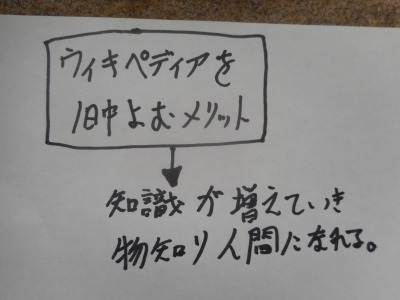 ウィキペディアを
1日中よむメリット
知識が増えていき
物知り人間になれる。